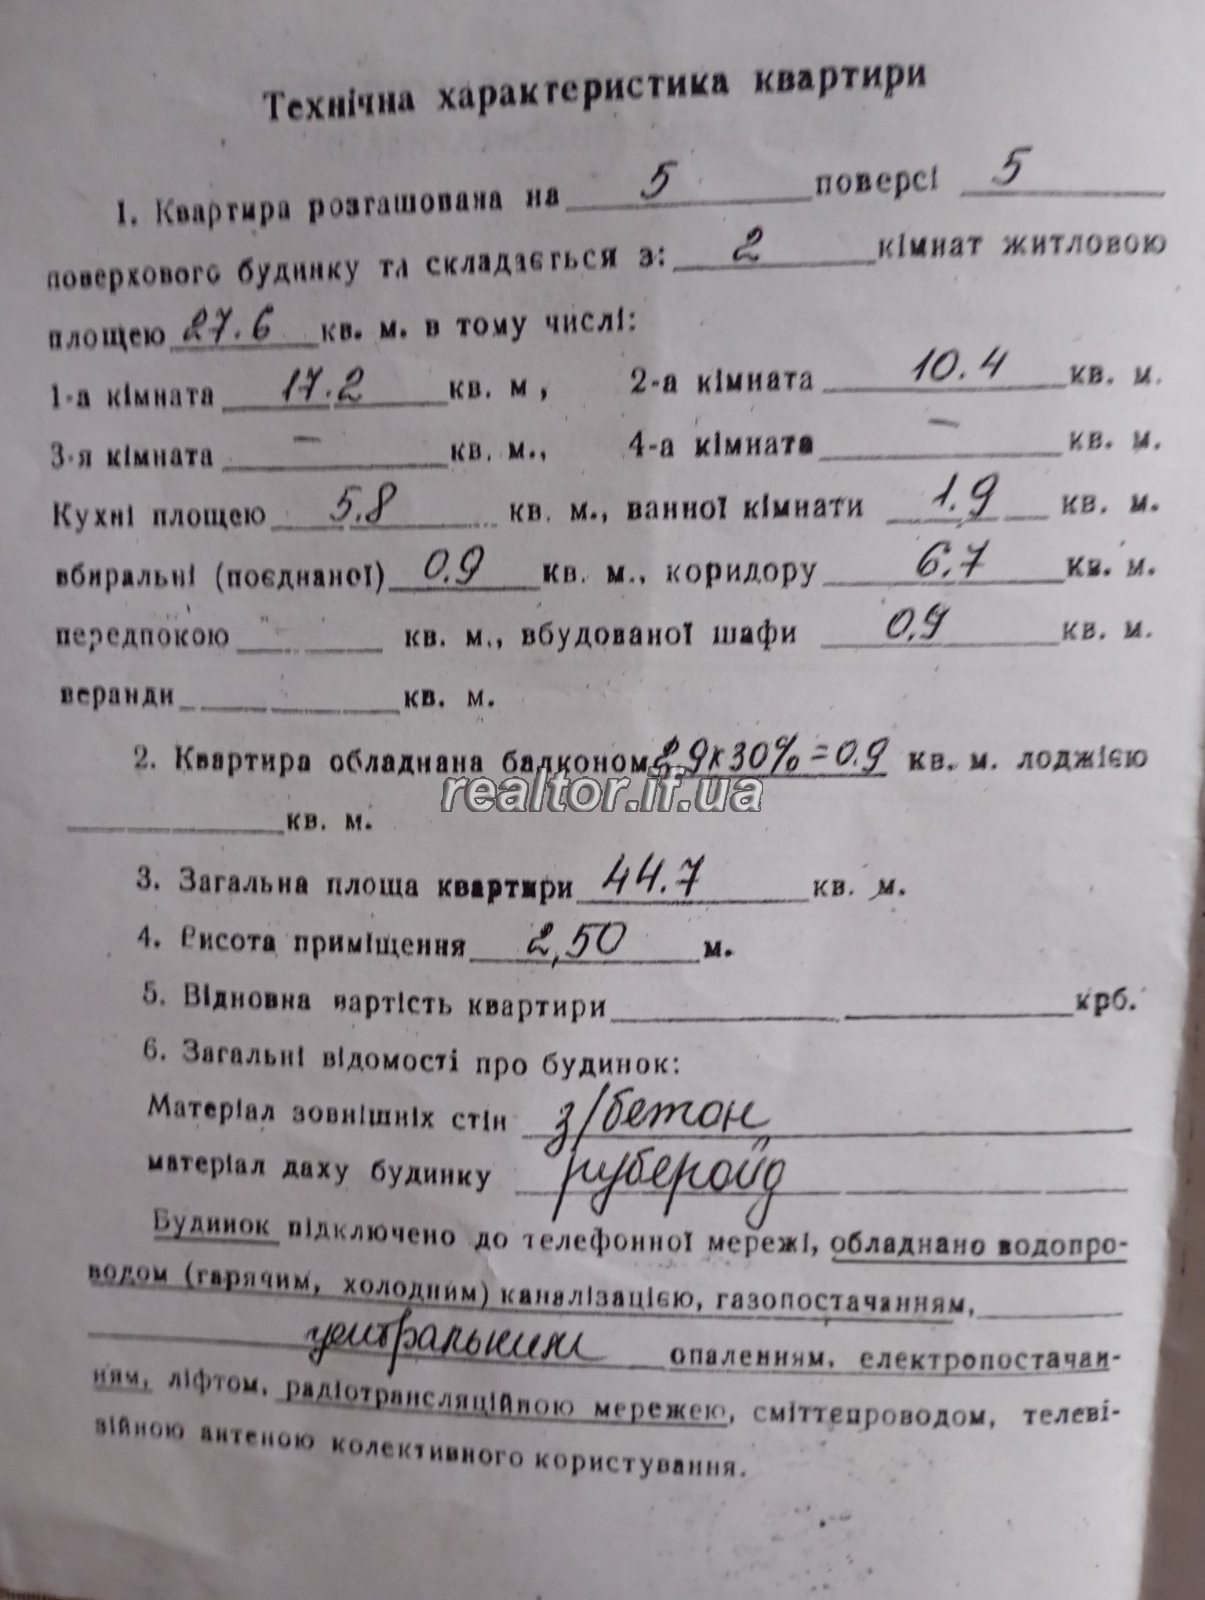 Технічна характеристика квартири
1. Квартира розташована на 5 поверсі 5
поверхового будинку та складається з: 2 кімнат житловою
площею 27.6 кв. м. в тому числі:
1-а кімната 17.2 кв. м, 2-а кімната 10.4 кв. м.
3-я кімната — кв. м., 4-а кімната — кв. м.
Кухні площею 5.8 кв. м., ванної кімнати 1.9 кв. м.
вбиральні (поєднаної) 0.9 кв. м., коридору 6.7 кв. м.
передпокою - кв. м., вбудованої шафи 0,9 кв. м.
веранди кв. м.
2. Квартира обладнана балконом 2,9х30%=0.9 кв. м. лоджією
realtor.if.ua
кв. м.
3. Загальна площа квартири 44.7 кв. м.
4. Висота приміщення 2,50 м.
5. Відновна вартість квартири крб.
6. Загальні відомості про будинок:
Матеріал зовнішніх стін з/бетон
матеріал даху будинку рубероїд
Будинок підключено до телефонної мережі, обладнано водопро-
водом (гарячим, холодним) каналізацією, газопостачанням,
центральним опаленням, електропостачан-
ням, ліфтом, радіотрансляційною мережею, сміттєпроводом, телеві-
зійною антеною колективного користування.